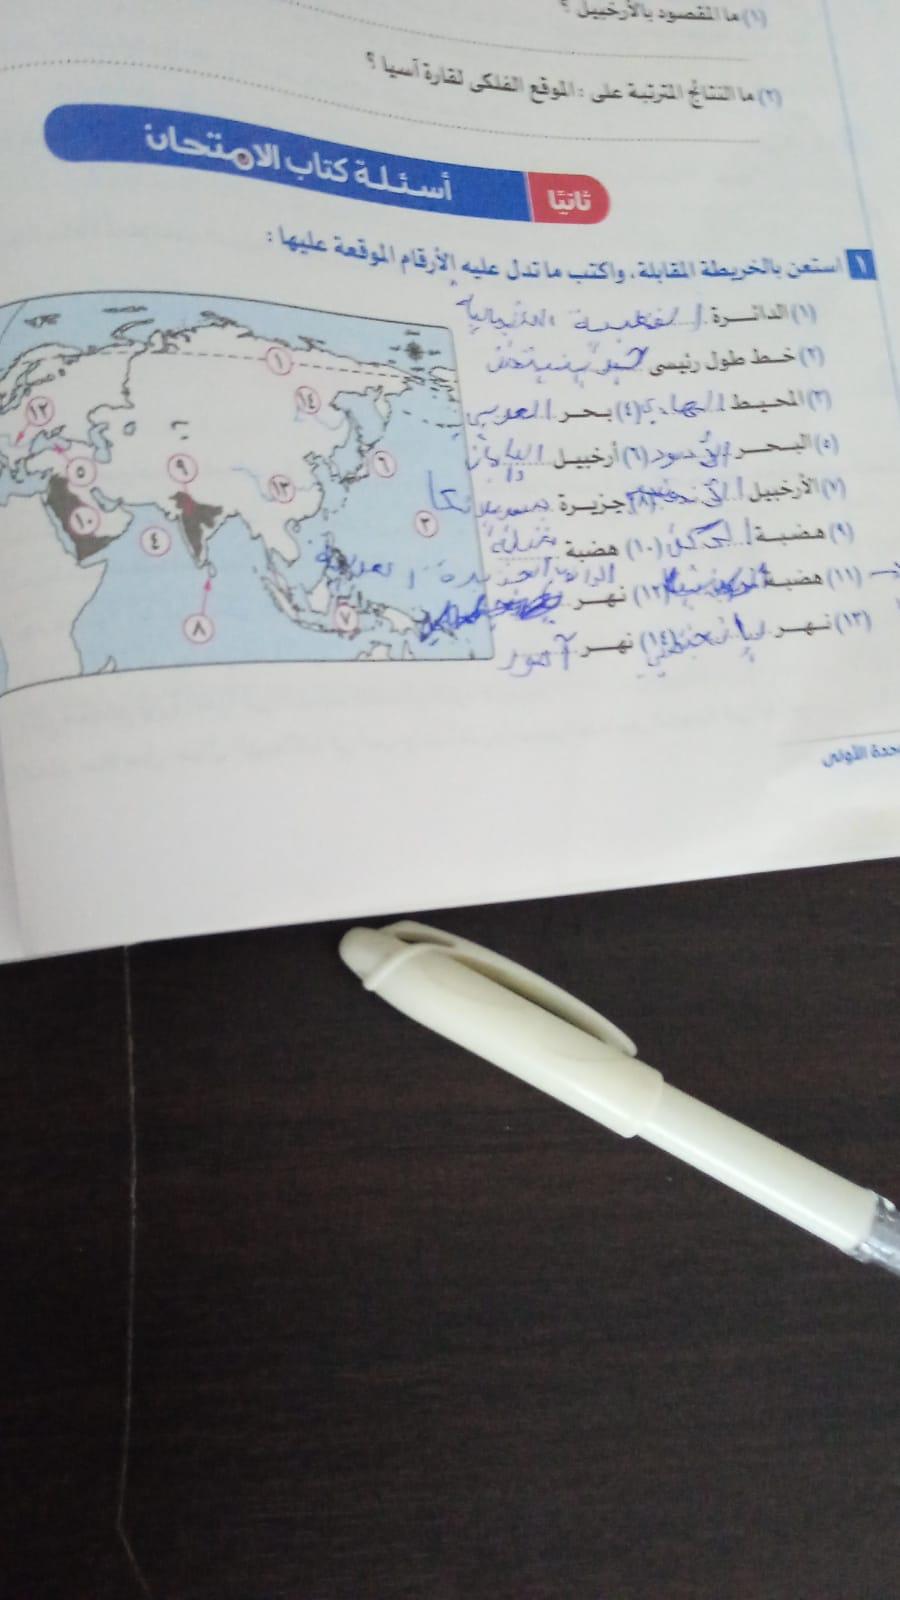 (١) ما المقصود بالأرخبيل ؟
(٢) ما النتائج المترتبة على : الموقع الفلكى لقارة آسيا ؟
ثانيًا أسئلة كتاب الامتحان
١ استعن بالخريطة المقابلة، واكتب ما تدل عليه الأرقام الموقعة عليها :
(١) الدائرة القطبية الشمالية
(٢) خط طول رئيسى جرينتش
(٣) المحيط الهادي (٤) بحر العربي
(٥) البحر الأسود (٦) أرخبيل اليابان
(٧) الأرخبيل (٨) جزيرة سريلانكا
(٩) هضبة الدكن (١٠) هضبة
(١١) هضبة (١٢) نهر
(١٣) نهر (١٤) نهر آمور
حدة الأولى
١
١٤
١٢
٦
٥
٩
١٣
١٠
٣
٤
٨
٧